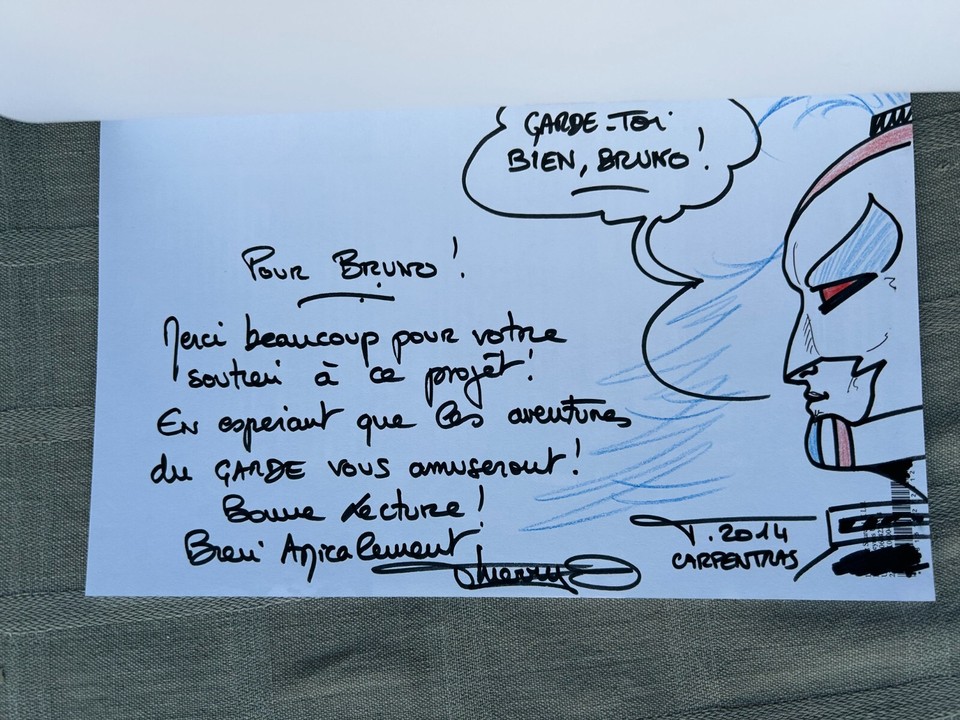 GARDE-TOI
BIEN, BRUNO!
POUR BRUNO!
Merci beaucoup pour votre
soutien à ce projêt!
EN esperant que les aventures
du GARDE vous amuseront!
Bonne Lecture!
Bien Amicalement
V. 2014
CARPENTRAS